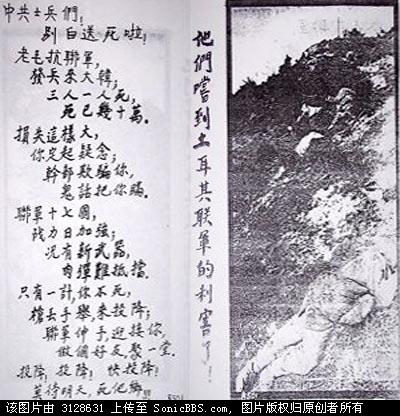 中共士兵們!
別白送死啦!
老毛抗聯軍,
發兵來大韓;
三人一人死,
死已幾十萬.
損失這樣大,
你定起疑念;
幹部欺騙你,
鬼話把你瞞.
聯軍十七國,
战力日加強;
况有新武器,
肉彈難抵擋.
只有一計,你不死,
槍丢手舉,來投降;
聯軍伸手,迎接你,
做個好友聚一堂.
投降,投降!快投降!
莫待明天,死他鄉!!!
他們嚐到土耳其联軍的利害了!
(该图片由 3128631 上传至 SonicBBS.com , 图片版权归原创者所有